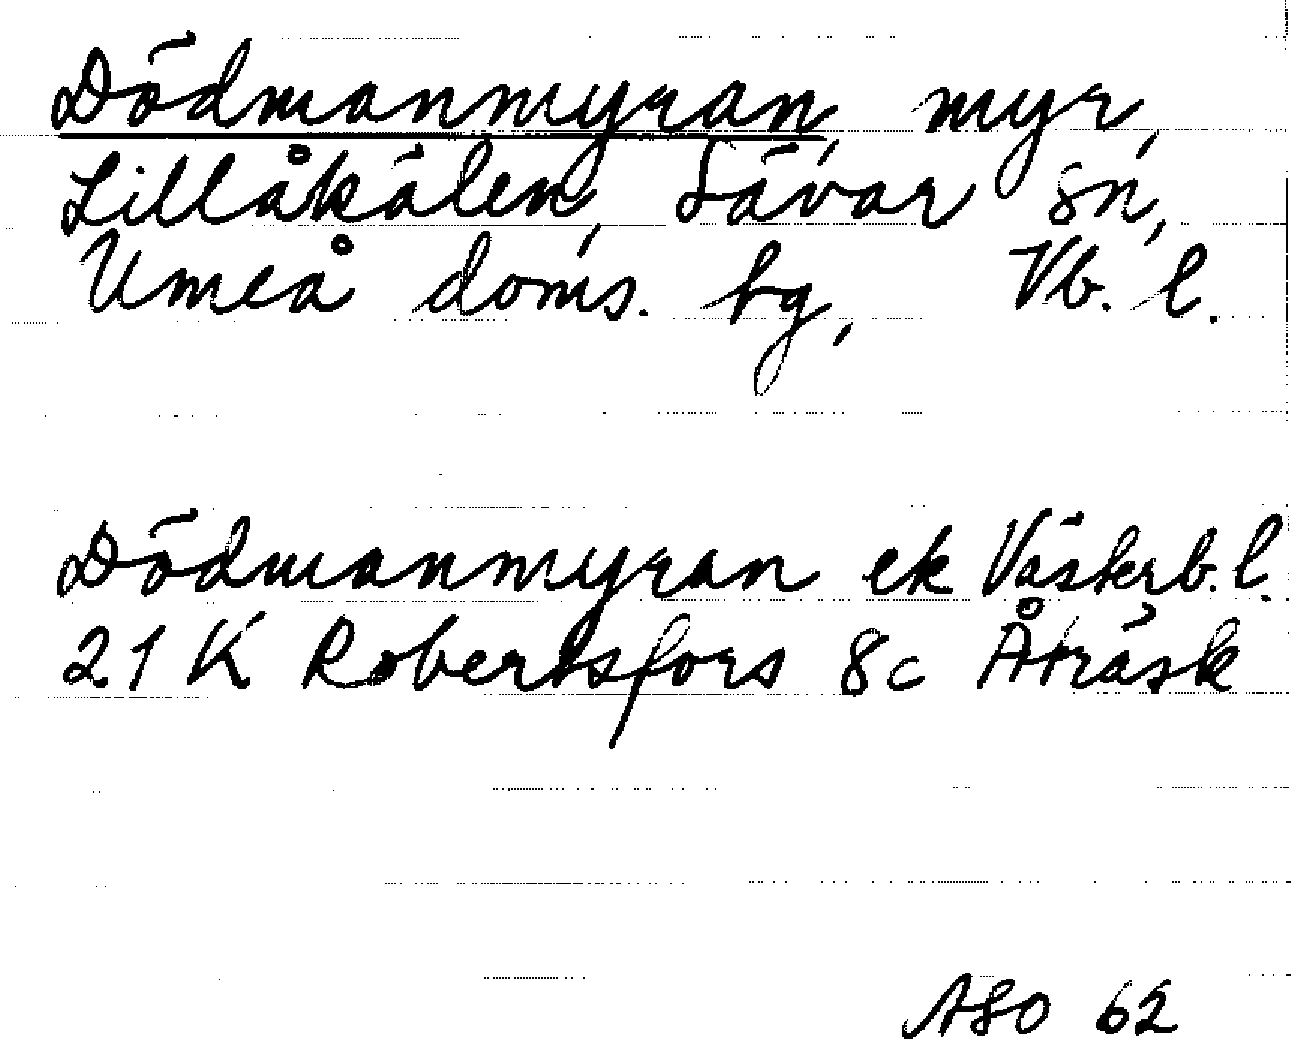 Dödmanmyran, myr,
Lillåkälen, Sävar sn,
Umeå doms. hg, Vb. l.
Dödmanmyran ek Västerb. l.
21 K Robertsfors 8c Åträsk
ASO 62